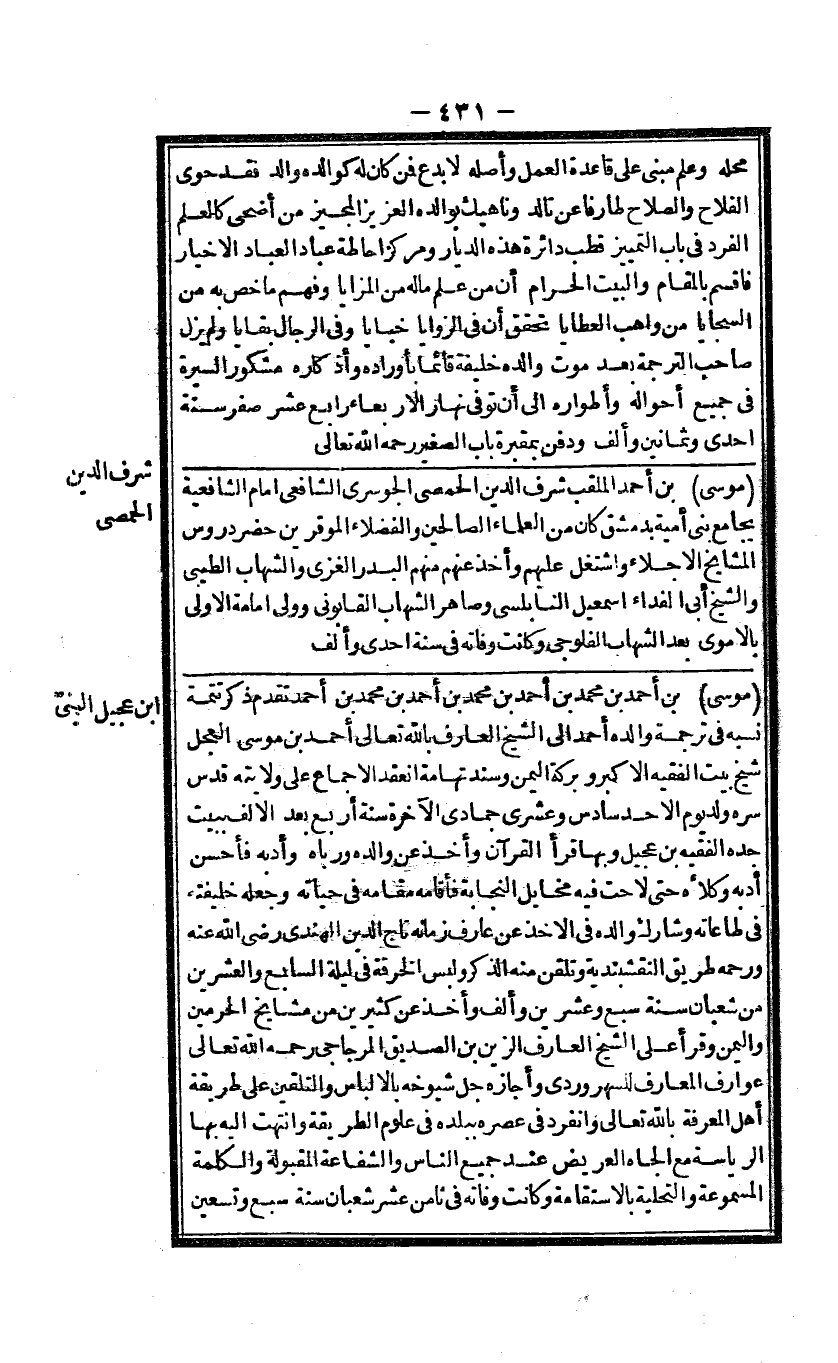 — ٤٣١ —
محله وعلم مبنى على قاعدة العمل وأصله لا بدع فمن كان له كوالده والد فقد حوى
الفلاح والصلاح طارفا عن تالد وناهيك بوالده العزيز المجيز من أضحى كالعلم
الفرد فى باب التمييز قطب دائرة هذه الديار ومركز احاطة عباد العباد الاخيار
فاقسم بالمقام والبيت الحرام أن من علم ماله من المزايا وفهم ما خص به من
السجايا من واهب العطايا تحقق أن فى الزوايا خبايا وفى الرجال بقايا ولم يزل
صاحب الترجمة بعد موت والده خليفة قائما بأوراده وأذكاره مشكور السيرة
فى جميع أحواله وأطواره الى أن توفى نهار الاربعاء رابع عشر صفر سنة
احدى وثمانين وألف ودفن بمقبرة باب الصغير رحمه الله تعالى
شرف الدين
الحمصى
(موسى) بن أحمد الملقب شرف الدين الحمصى الجوسرى الشافعى امام الشافعية
بجامع بنى أمية بدمشق كان من العلماء الصالحين والفضلاء الموقرين حضر دروس
المشايخ الاجلاء واشتغل عليهم وأخذ عنهم منهم البدر الغزى والشهاب الطيبى
والشيخ أبى الفداء اسمعيل النابلسى وصاهر الشهاب القانونى وولى امامة الاولى
بالاموى بعد الشهاب الفلوجى وكانت وفاته فى سنة احدى وألف
ابن عجيل اليمنى
(موسى) بن أحمد بن محمد بن أحمد بن محمد بن أحمد بن محمد بن أحمد تقدم ذكر تتمة
نسبه فى ترجمة والده أحمد الى الشيخ العارف بالله تعالى أحمد بن موسى العجل
شيخ بيت الفقيه الاكبر وبركة اليمن وسند تهامة انعقد الاجماع على ولايته قدس
سره ولد يوم الاحد سادس وعشرى جمادى الآخرة سنة أربع بعد الالف ببيت
جده الفقيه بن عجيل وبها قرأ القرآن وأخذ عن والده ورباه وأدبه فأحسن
أدبه وكلأه حتى لاحت فيه مخايل النجابة فأقامه مقامه فى حياته وجعله خليفة
فى طاعاته وشارك والده فى الاخذ عن عارف زمانه تاج الدين الهندى رضى الله عنه
ورحمه طريق النقشبندية وتلقن منه الذكر ولبس الخرقة فى ليلة السابع والعشرين
من شعبان سنة سبع وعشرين وألف وأخذ عن كثيرين من مشايخ الحرمين
واليمن وقرأ على الشيخ العارف الزين بن الصديق المزجاجى رحمه الله تعالى
عوارف المعارف للسهروردى وأجازه جل شيوخه بالالباس والتلقين على طريقة
أهل المعرفة بالله تعالى وانفرد فى عصره ببلده فى علوم الطريقة وانتهت اليه بها
الرياسة مع الجاه العريض عند جميع الناس والشفاعة المقبولة والكلمة
المسموعة والتحلية بالاستقامة وكانت وفاته فى ثامن عشر شعبان سنة سبع وتسعين